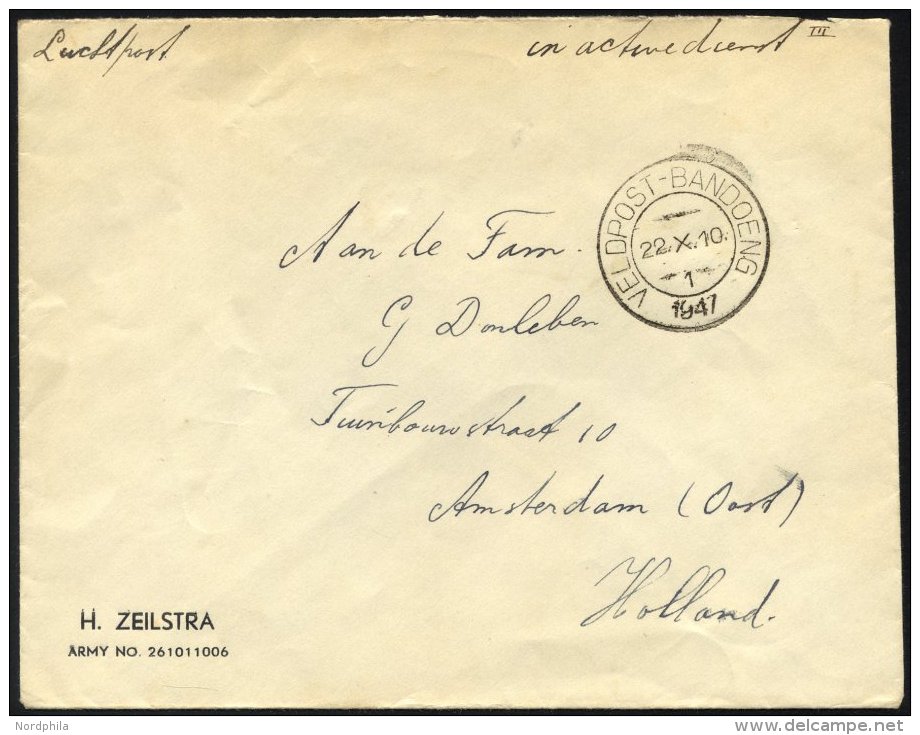 Luchtpost
in active dienst III
VELDPOST-BANDOENG
22.X.10.
1
1947
Aan de Fam.
G Donleben
Tuinbouwstraat 10
Amsterdam (Oost)
Holland.
H. ZEILSTRA
ARMY NO. 261011006
Nordphila
delcampe.net